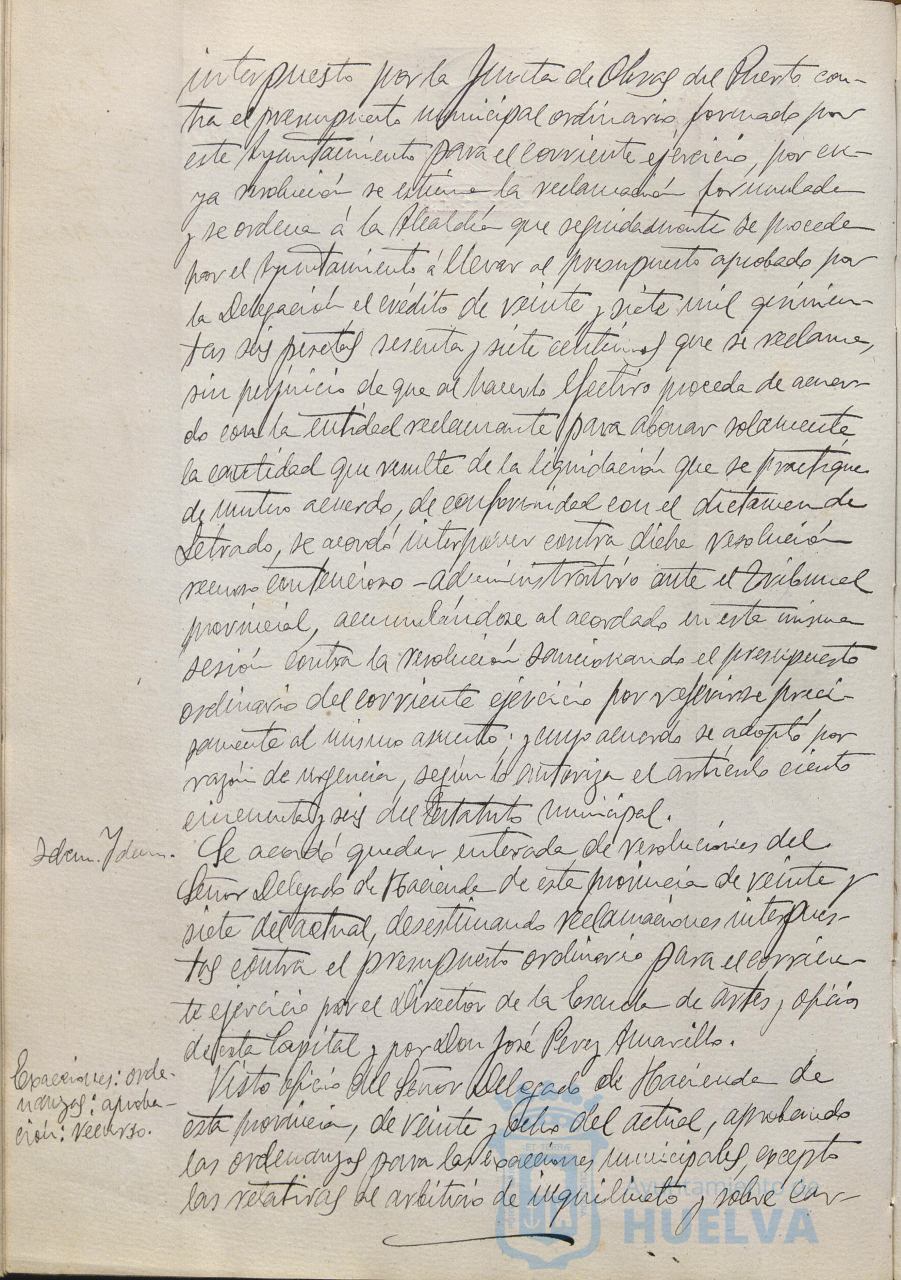 interpuesto por la Junta de Obras del Puerto con-
tra el presupuesto municipal ordinario formado por
este Ayuntamiento para el corriente ejercicio, por cu-
ya resolución se estima la reclamación formulada
y se ordena á la Alcaldía que seguidamente se proceda
por el Ayuntamiento á llevar al presupuesto aprobado por
la Delegación el crédito de veinte y siete mil quinien-
tas seis pesetas sesenta y siete centimos que se reclama,
sin perjuicio de que al hacerlo efectivo proceda de acuer-
do con la entidad reclamante para abonar solamente
la cantidad que resulte de la liquidación que se practique
de mutuo acuerdo, de conformidad con el dictamen de
Letrado, se acordó interponer contra dicha resolución
recurso contencioso-administrativo ante el Tribunal
provincial, acumulándose al acordado en esta misma
sesión contra la resolución sancionando el presupuesto
ordinario del corriente ejercicio por referirse preci-
samente al mismo asunto; y cuyo acuerdo se adoptó por
razón de urgencia, según lo autoriza el artículo ciento
cincuenta y seis del Estatuto municipal.
Idem. Idem.
Se acordó quedar enterada de resoluciones del
Señor Delegado de Hacienda de esta provincia de veinte y
siete del actual, desestimando reclamaciones interpues-
tas contra el presupuesto ordinario para el corrien-
te ejercicio por el Director de la Escuela de artes y oficios
de esta Capital y por Don José Perez Amarillo.
Exacciones: orde-
nanzas: aproba-
ción: recurso.
Visto oficio del Señor Delegado de Hacienda de
esta provincia, de veinte y ocho del actual, aprobando
las ordenanzas para las exacciones municipales, excepto
las relativas al arbitrio de inquilinato y sobre car-
Ayuntamiento de
HUELVA